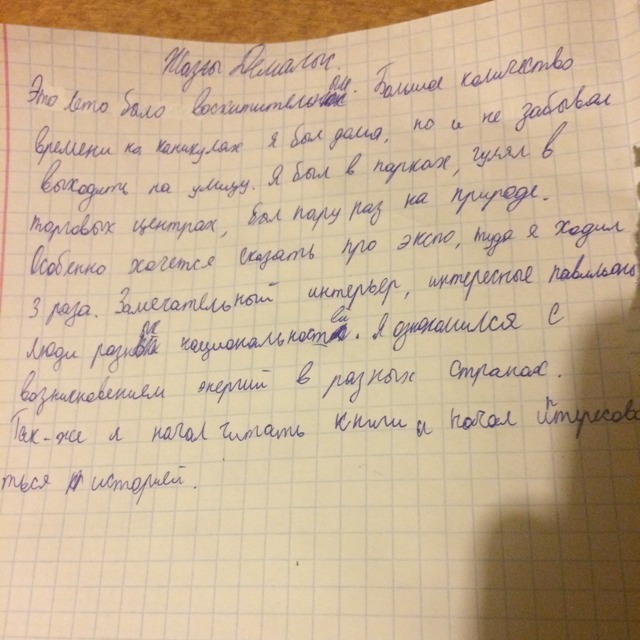 Жазғы Демалыс.
Это лето было восхитительное. Большое количество
времени на каникулах я был дома, но и не забывал
выходить на улицу. Я был в парках, гулял в
торговых центрах, был пару раз на природе.
Особенно хочется сказать про экспо, туда я ходил
3 раза. Замечательный интерьер, интересные павильоны
люди разных национальностей. Я ознакомился с
возникновением энергий в разных странах.
Так-же я начал читать книги и начал интересова
ться историей.